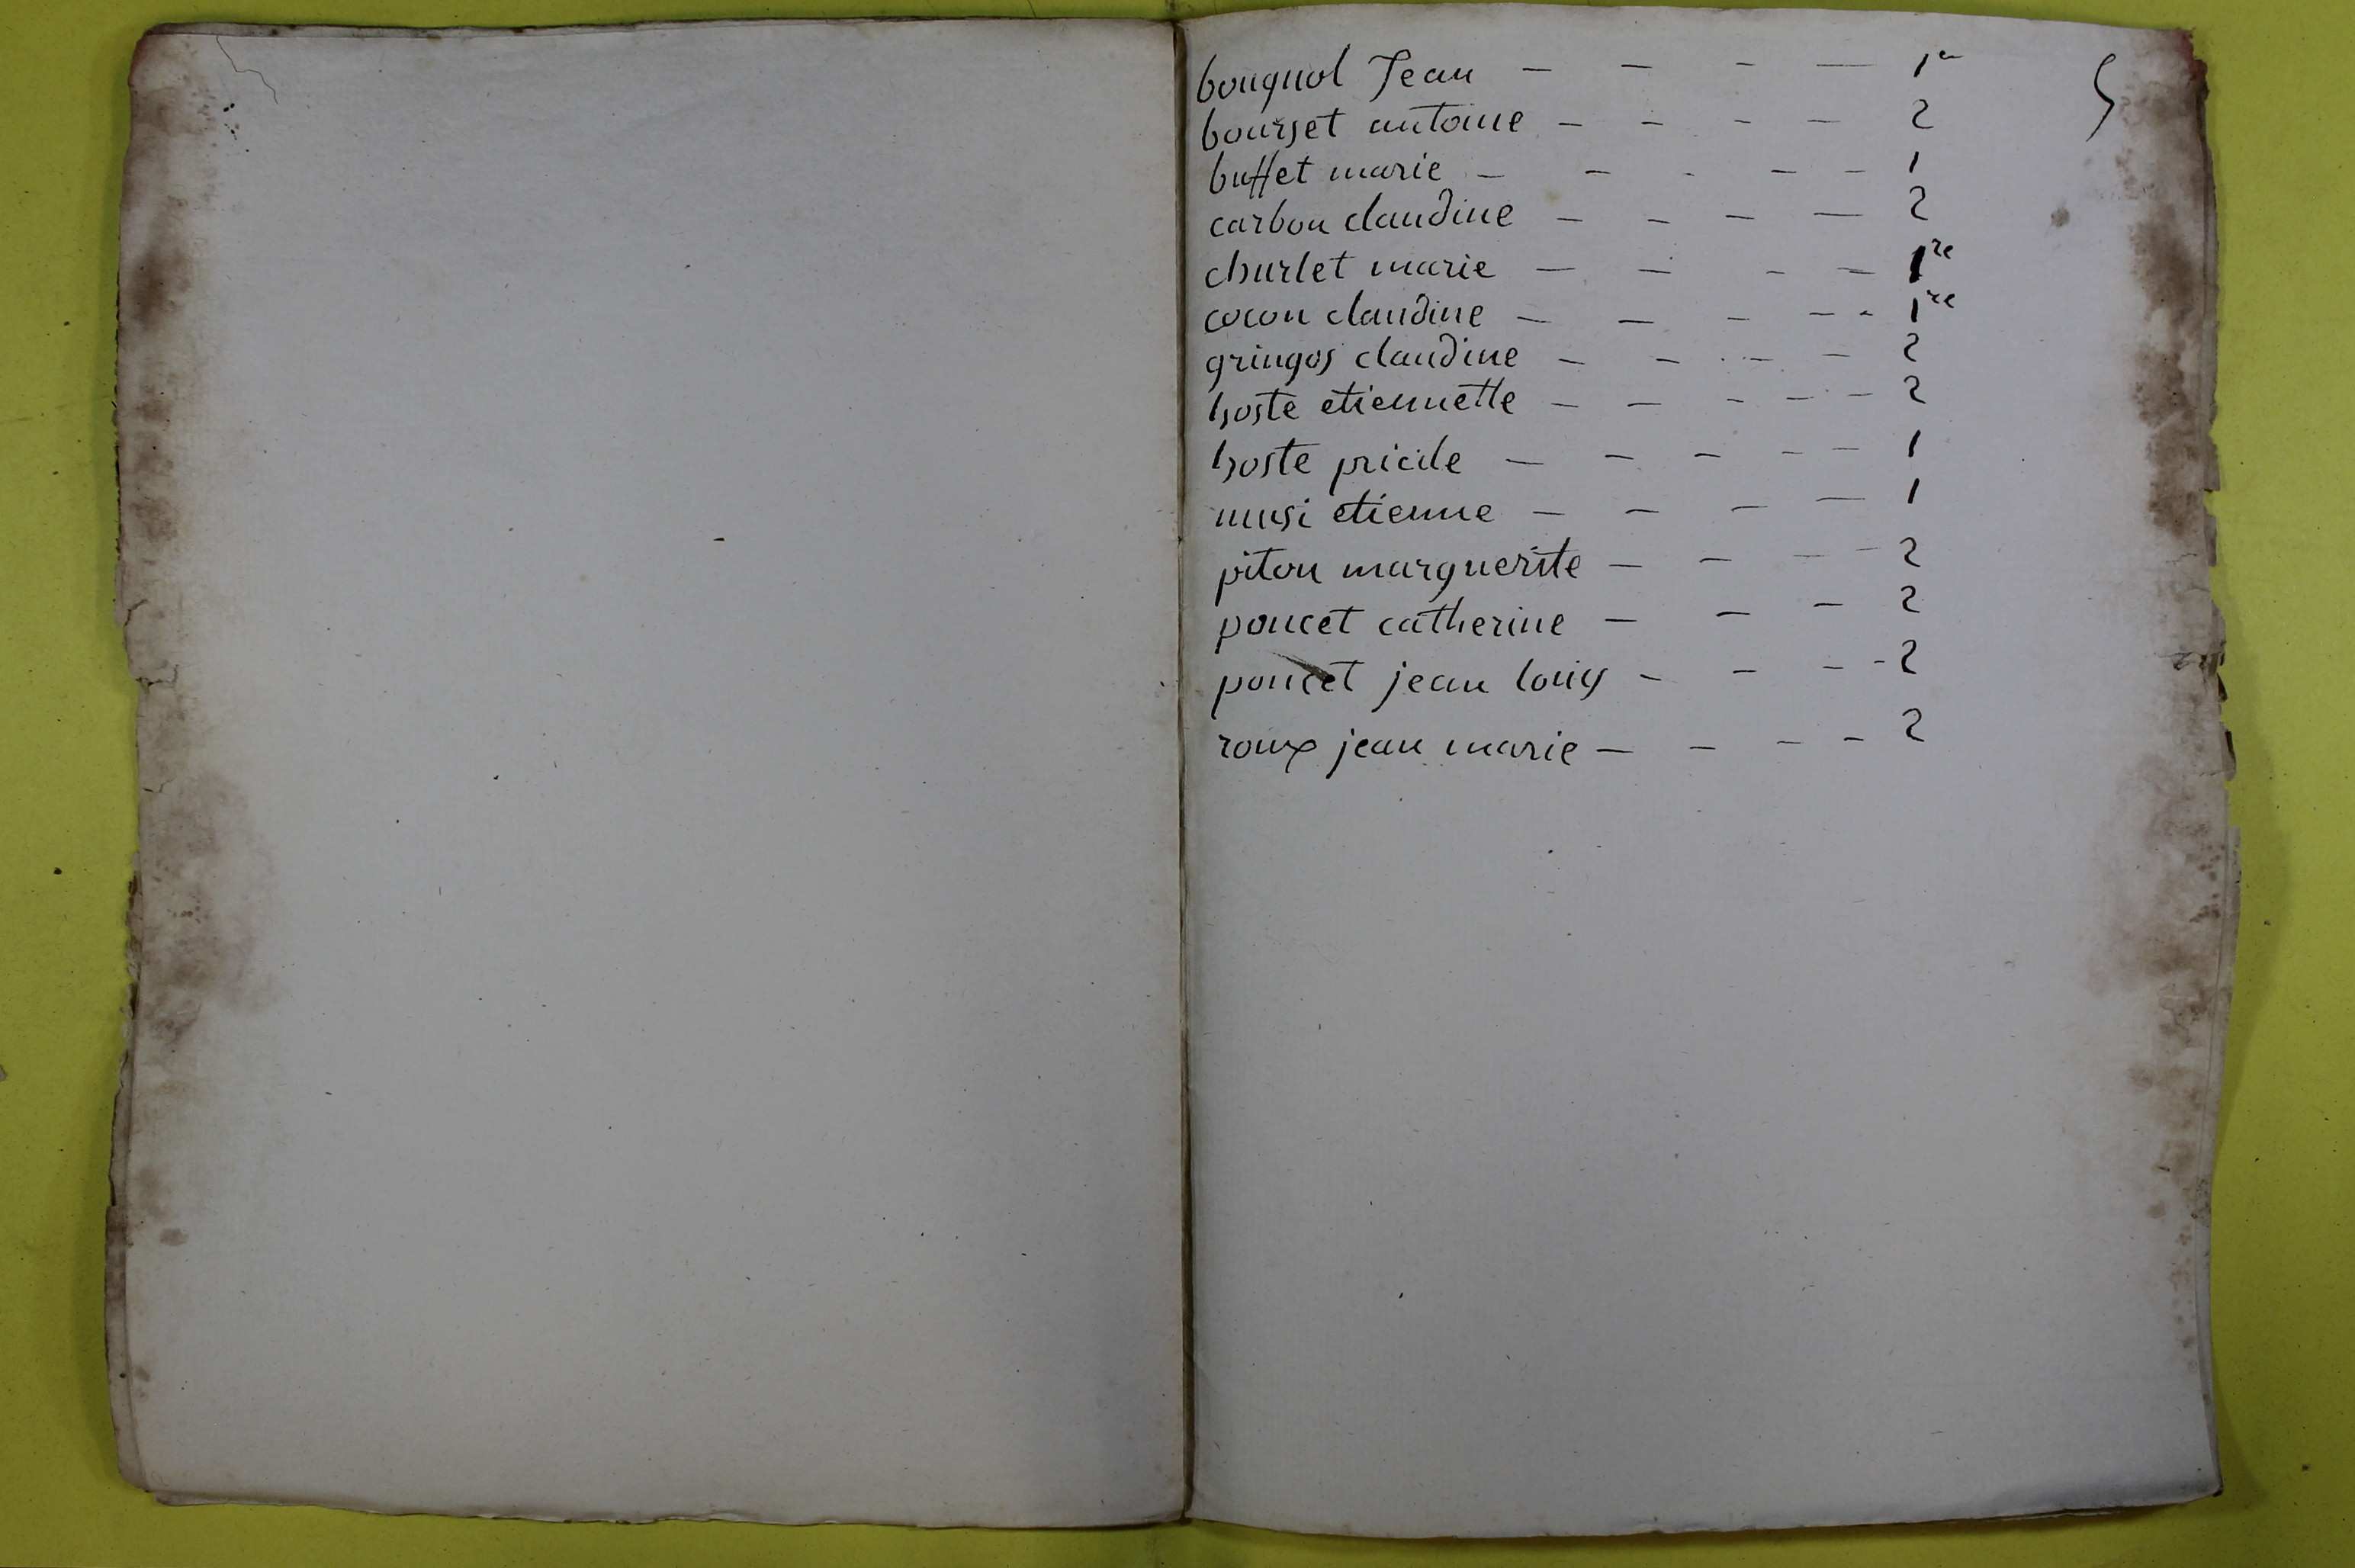 bougnol Jean — — — — 1re
5
bourset antoine — — — — 2
buffet marie — — - — — 1
carbon claudine — — — — 2
churlet marie — — — — 1re
cocon claudine — — — — - 1re
gringos claudine — — — — 2
hoste etiennette — — — — — 2
hoste pricile — — — — — 1
musi etienne — — — — 1
piton marguerite — — — — 2
poncet catherine — — — 2
poncet jean louis — — — - 2
roux jean marie — — — — 2